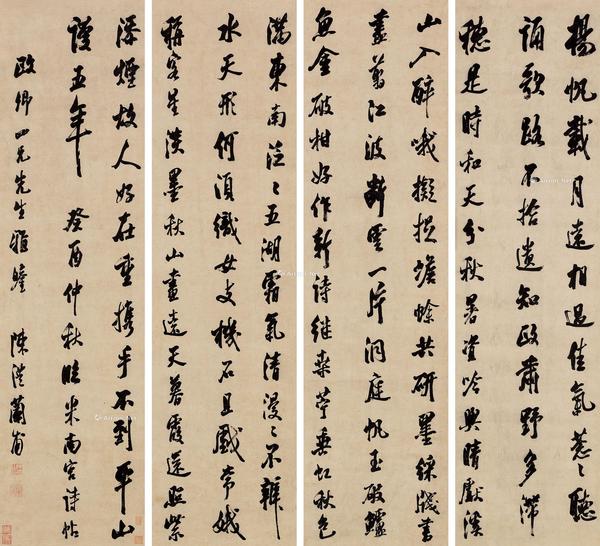 揚帆載月遠相過佳氣葱〻聽
誦歌路不拾遺知政肅野多滯
穗是時和天分秋暑資吟興晴獻溪
山入醉哦擬捉蟾蜍共研墨綵牋書
盡剪江波斷雲一片洞庭帆玉破鱸
魚金破柑好作新詩繼桑苧垂虹秋色
滿東南泛〻五湖霜氣清漫〻不辨
水天形何須織女支機石且戲常娥
稱客星淡墨秋山畫遠天暮霞還照紫
添煙故人好在重携手不到平山
謾五年 癸酉仲秋臨米南宮詩帖
政卿四兄先生雅 陳澧蘭甫